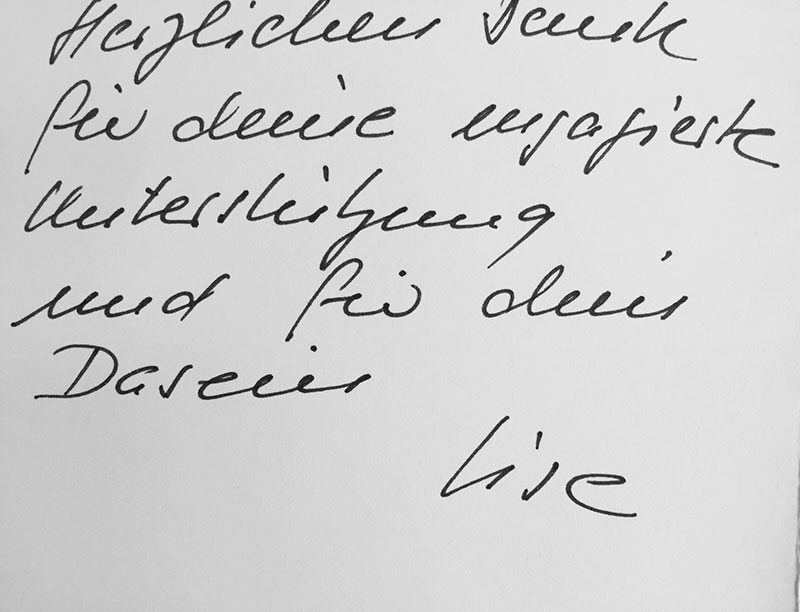 Herzlichen Dank
für deine engagierte
Unterstützung
und für dein
Dasein
Lise